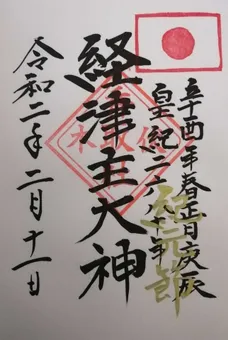 辛酉年春正月庚辰
皇紀二六八十年
紀元節
経津主大神
令和二年二月十一日